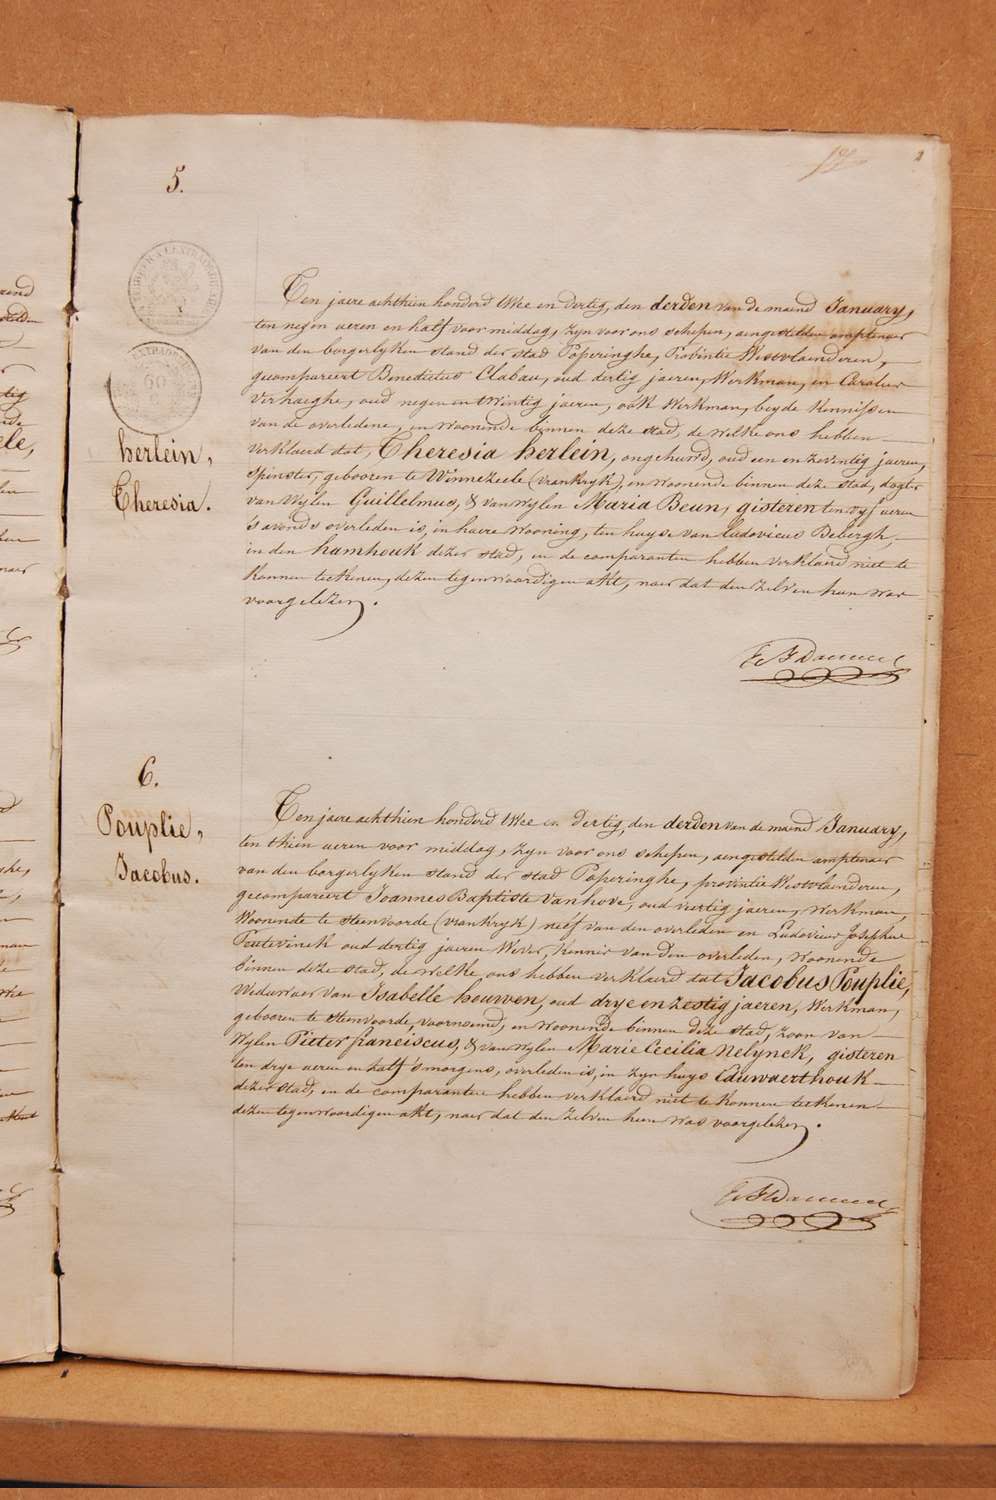 2
5.
60
herlein,
Theresia.
Ten jaere achthien honderd twee en dertig, den derden van de maend January,
ten negen ueren en half voor middag, zyn voor ons schepen, aengestelden amptenaer
van den borgerlyken stand der stad Poperinghe, Provintie Westvlaenderen,
gecompareert Benedictus Clabau, oud dertig jaeren, Werkman, en Carolus
Verhaeghe, oud negen en twintig jaeren, ook Werkman, beyde kennissen
van de overledene, en woonende binnen deze stad, de welke ons hebben
verklaerd dat, Theresia herlein, ongehuwd, oud een en zeventig jaeren,
spinster, gebooren te Winnezeele (vrankryk), en woonende binnen deze stad, dogter
van wylen Guillelmus, & van wylen Maria Beun, gisteren ten vyf ueren
's avonds overleden is, in haere wooning, ten huyse van Ludovicus Debergh,
in den hamhouk dezer stad, en de comparanten hebben verklaerd niet te
konnen teekenen, dezen tegenwoordigen akt, naer dat den zelven hun was
voorgelezen.
6.
Pouplie,
Jacobus.
Ten jaere achthien honderd twee en dertig, den derden van de maend January,
ten thien ueren voor middag, zyn voor ons schepen, aengestelden amptenaer
van den borgerlyken stand der stad Poperinghe, provintie Westvlaenderen,
gecompareert Joannes Baptiste Vanhove, oud viertig jaeren, werkman,
Woonende te steenvoorde (vrankryk) neef van den overleden en Ludovicus Josephus
Peutevinck oud dertig jaeren Wever, kennis van den overleden, woonende
binnen deze stad, de welke ons hebben verklaerd dat Jacobus Pouplie,
Weduwaer van Isabelle houwen, oud drye en zestig jaeren, werkman,
gebooren te steenvoorde, voornoemd, en woonende binnen deze stad, zoon van
Wylen Pitter franciscus, & van wylen Marie Cecilia Nelynck, gisteren
ten drye ueren en half 's morgens, overleden is, in zyn huys Cauwaerthouk
dezer stad, en de comparanten hebben verklaerd niet te konnen teekenen
dezen tegenwoordigen akt, naer dat den zelven hun was voorgelezen.